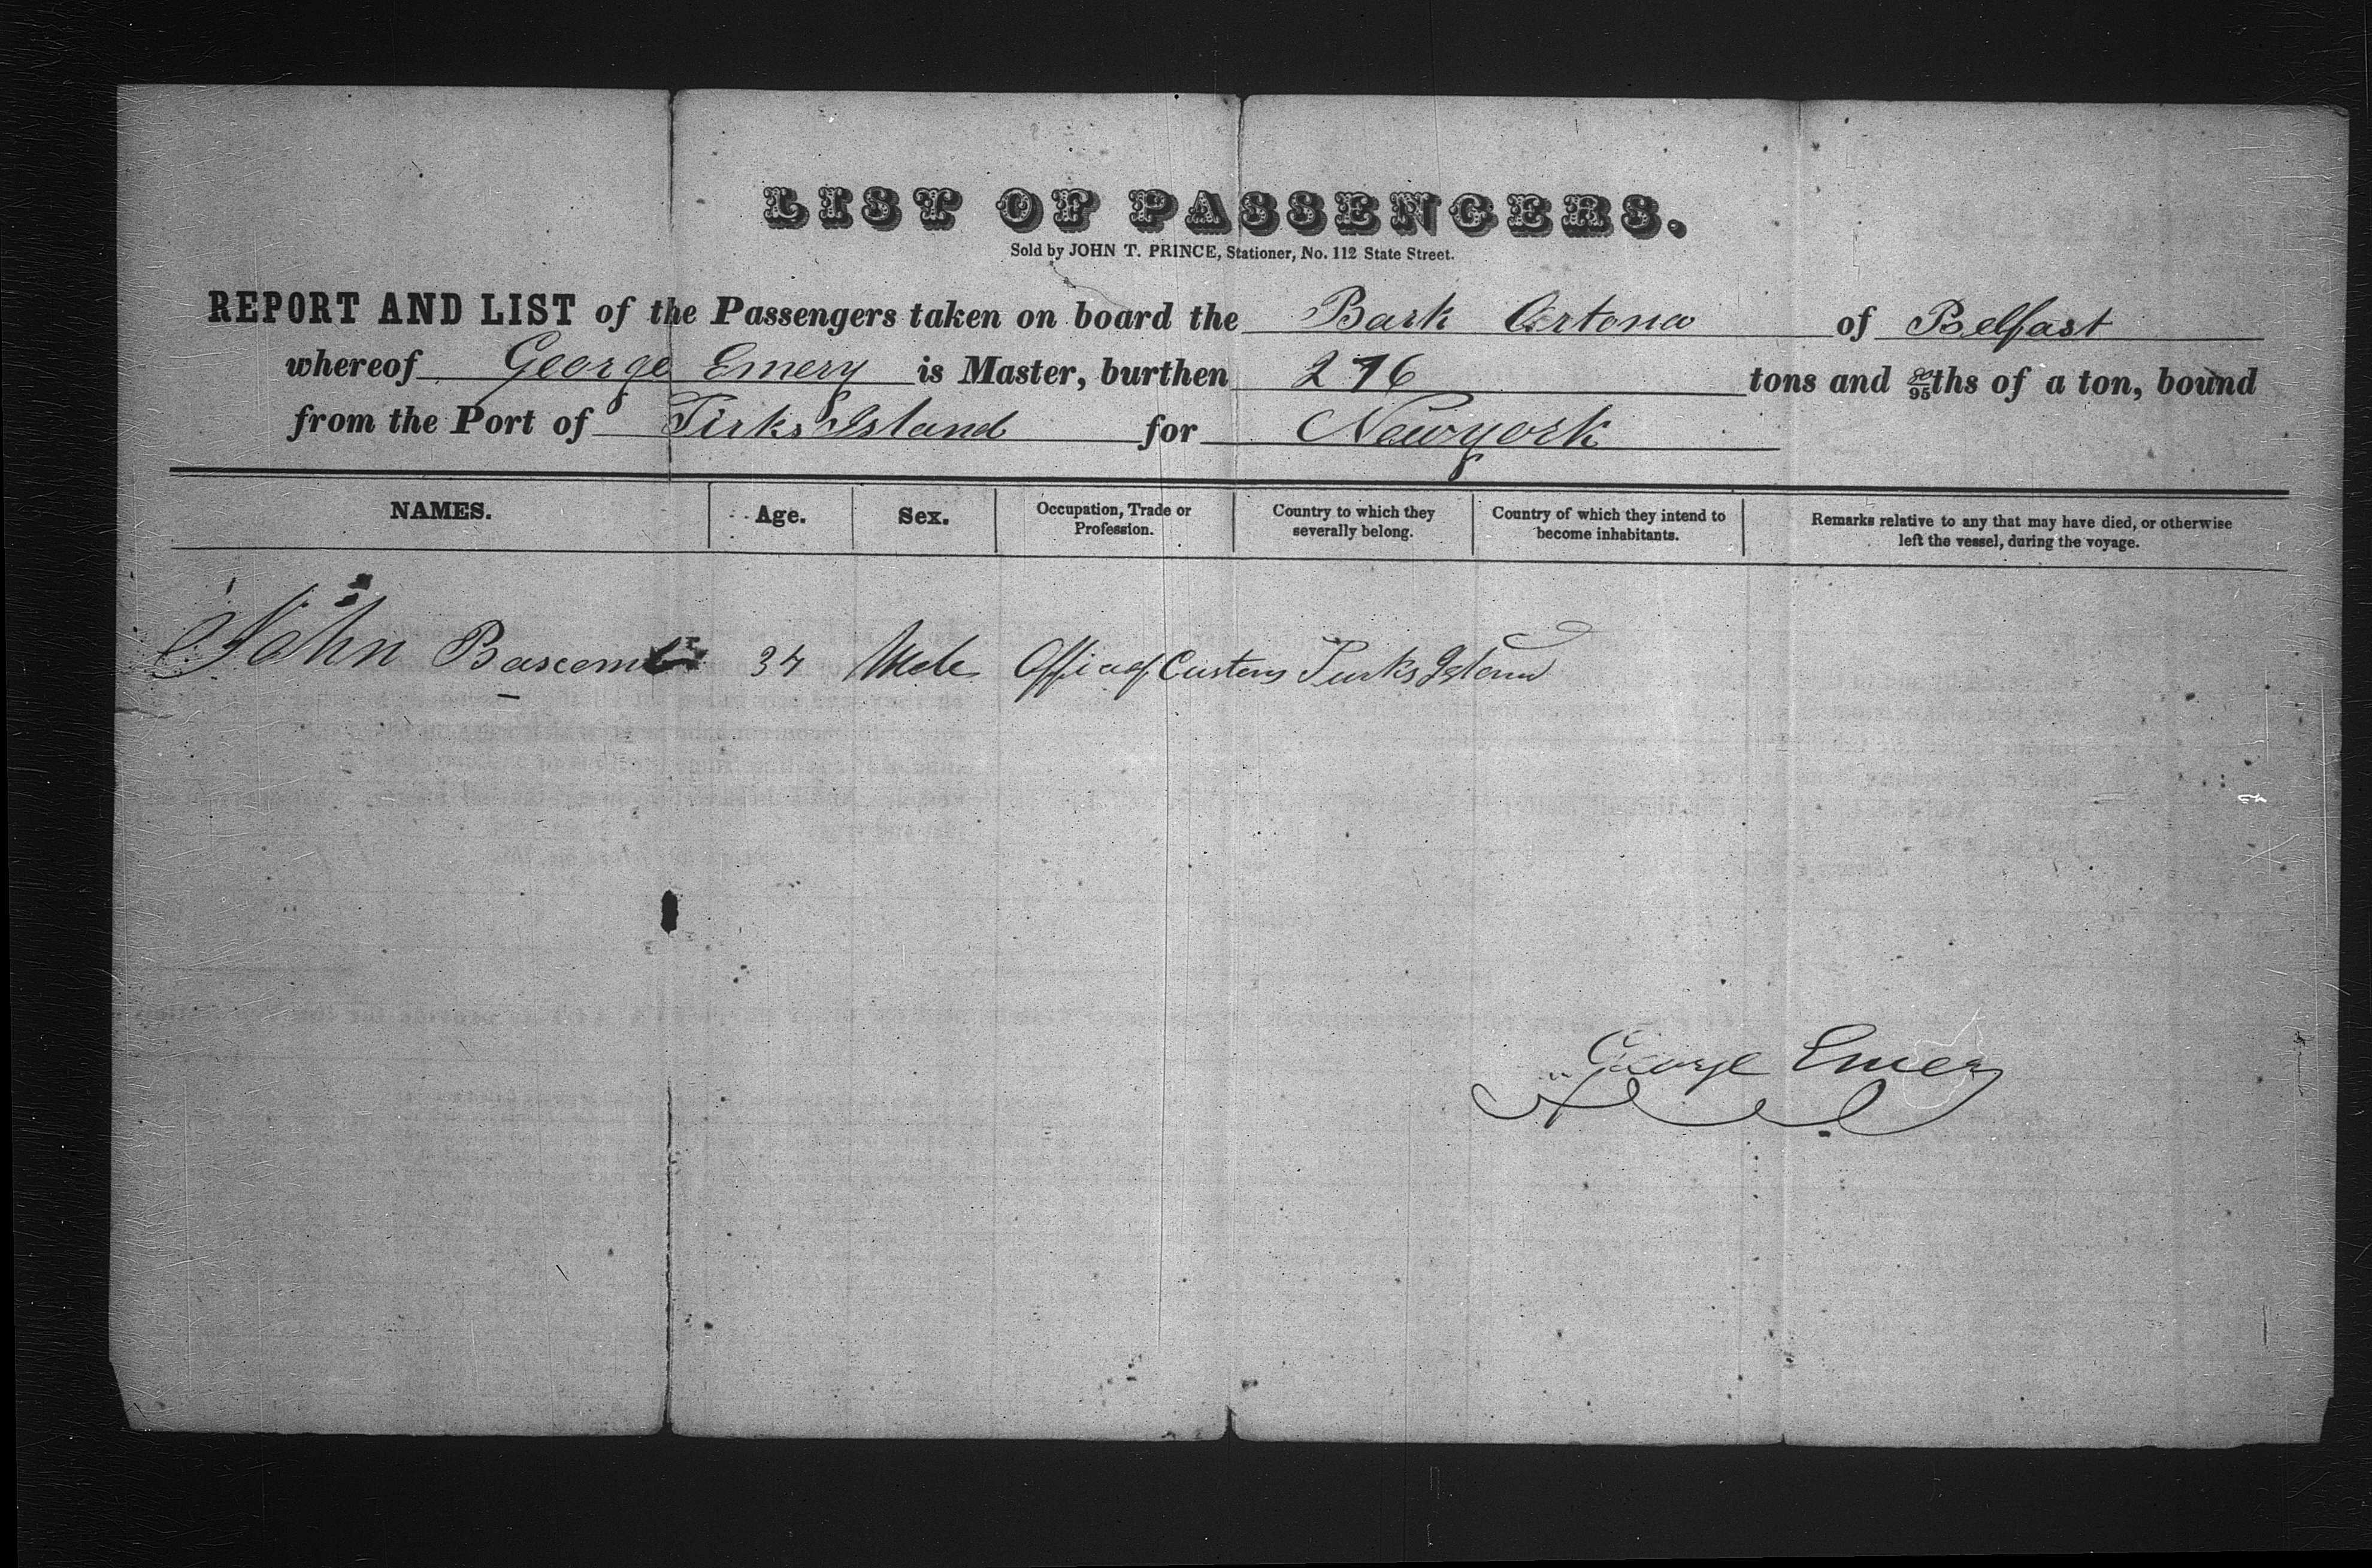 LIST OF PASSENGERS.
Sold by JOHN T. PRINCE, Stationer, No. 112 State Street.
REPORT AND LIST of the Passengers taken on board the Bark Ortona of Belfast
whereof George Emery is Master, burthen 276 tons and 80/95ths of a ton, bound
from the Port of Tirks Island for Newyork
NAMES. Age. Sex. Occupation, Trade or Profession. Country to which they severally belong. Country of which they intend to become inhabitants. Remarks relative to any that may have died, or otherwise left the vessel, during the voyage.
John Bascomb 34 Male Turks Island
George Emery